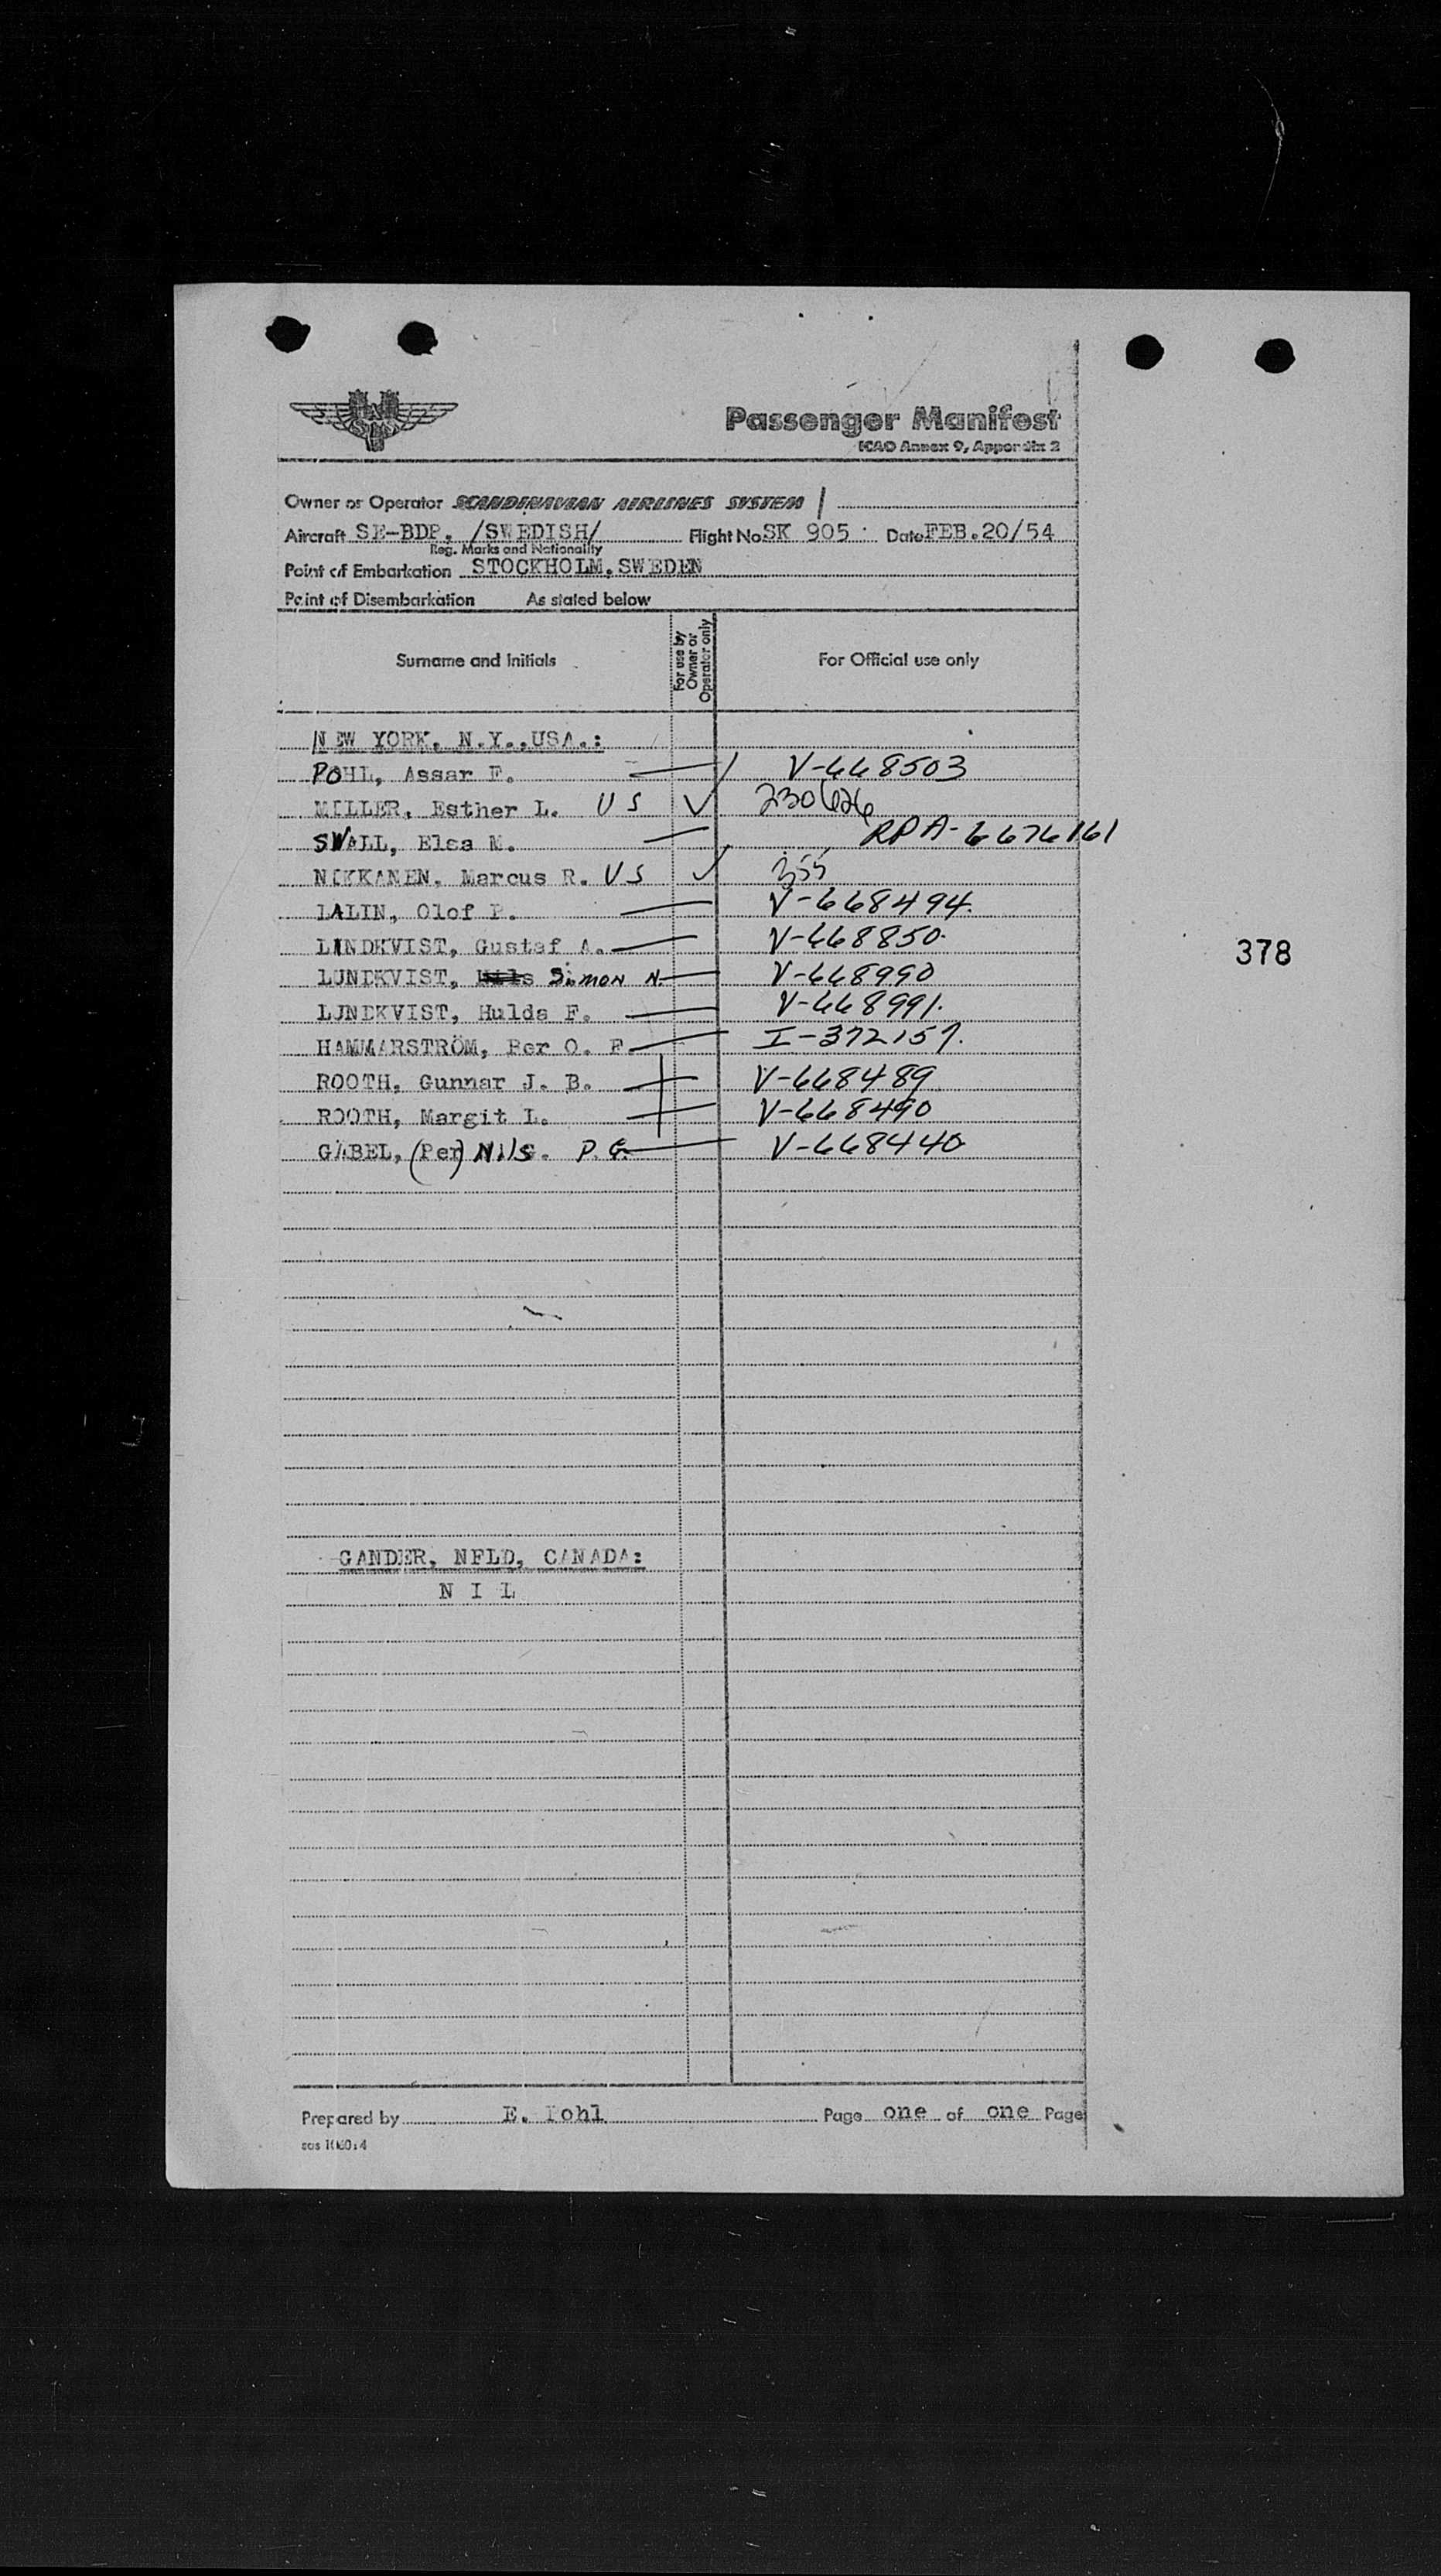 Passenger Manifest
ICAO Annex 9, Appendix 2
Owner or Operator SCANDINAVIAN AIRLINES SYSTEM
Aircraft SE-BDP. /SWEDISH/ Flight No SK 905 Date FEB.20/54
Reg. Marks and Nationality
Point of Embarkation STOCKHOLM, SWEDEN
Point of Disembarkation As stated below
Surname and Initials For use by Owner or Operator only For Official use only
NEW YORK, N.Y.,USA.:
POHL, Assar F. V-668503
MILLER, Esther L. US 230626
SWALL, Elsa M. RPA-6676161
NIKKANEN, Marcus R. US 355
LALIN, Olof P. V-668494
LINDKVIST, Gustaf A. V-668850
LUNDKVIST, Simon N. V-668990
LUNDKVIST, Hulda F. V-668991.
HAMMARSTRÖM, Per O. F. I-372157.
ROOTH, Gunnar J. B. V-668489
ROOTH, Margit L. V-668490
GABEL, (Per) Nils. P.G. V-668440
378
GANDER, NFLD, CANADA:
N I L
Prepared by E. Pohl Page one of one Page